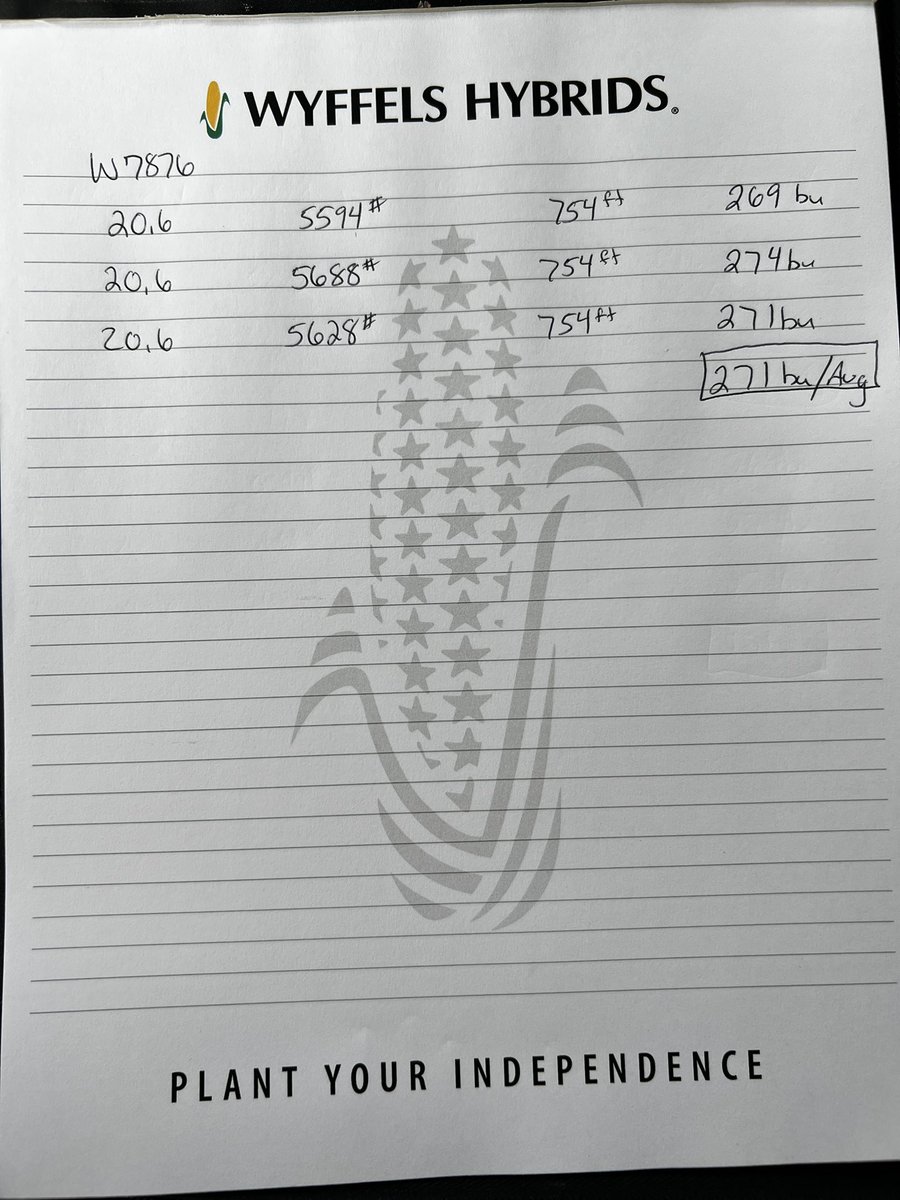 WYFFELS HYBRIDS®
W7876
20.6 5594# 754ft 269 bu
20.6 5688# 754ft 274bu
20.6 5628# 754ft 271bu
271bu/Avg
PLANT YOUR INDEPENDENCE